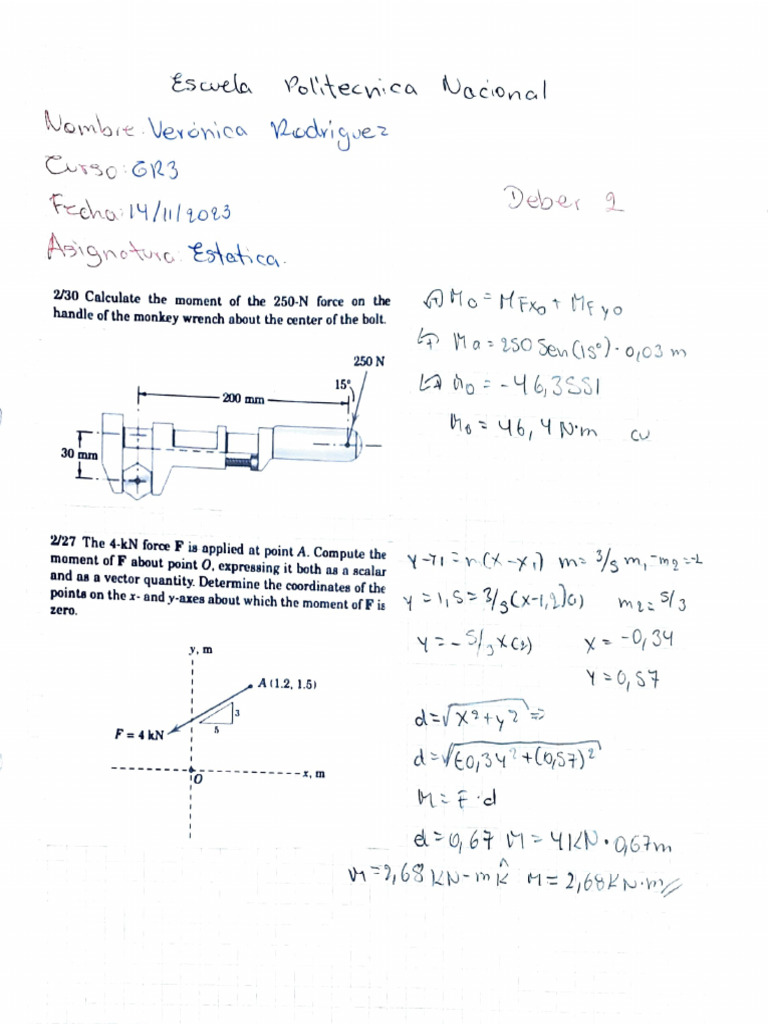 Escuela Politecnica Nacional
Nombre: Verónica Rodríguez
Curso: GR3
Fecha: 14/11/2023
Deber 2
Asignatura: Estatica.
2/30 Calculate the moment of the 250-N force on the
handle of the monkey wrench about the center of the bolt.
Mo = MFxo + MFyo
Ma = 250 Sen(15°) · 0,03 m
Mo = -46,3551
Mo = 46,4 N·m cw
250 N
15°
200 mm
30 mm
2/27 The 4-kN force F is applied at point A. Compute the
moment of F about point O, expressing it both as a scalar
and as a vector quantity. Determine the coordinates of the
points on the x- and y-axes about which the moment of F is
zero.
y-y1 = m(x-x1) m = 3/5 m1 - m2 = -1
y = 1,5 = 3/5(x-1,2)(1) m2 = 5/3
y = - 5/3 x (2) x = -0,34
y = 0,57
y, m
A (1.2, 1.5)
3
5
F = 4 kN
O
x, m
d = √x²+y² ⇒
d = √(-0,34² + (0,57)²
M = F · d
d = 0,67 M = 4 KN · 0,67m
M = 2,68 KN-m k̂ M = 2,68 KN·m //